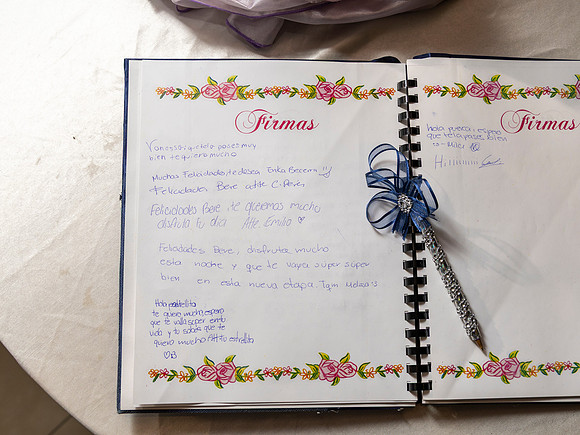 Firmas
Vanessa quelo pases muy
bien te quiero mucho
Muchas Felicidades te desea Erika Becerra
Felicidades Bere atte C. Reyes
Felicidades Bere, te queremos mucho
disfruta tu día Atte. Emilia
Felicidades Bere, disfruta mucho
esta noche y que te vaya super super
bien en esta nueva etapa. Tqm Melissa
Hola estrellita
te quiero mucho, espero
que te valla super en tu
vida y tu sabes que te
quiero mucho Att: tu estrellita
Firmas
hola puerca, espero
que te la pases bien